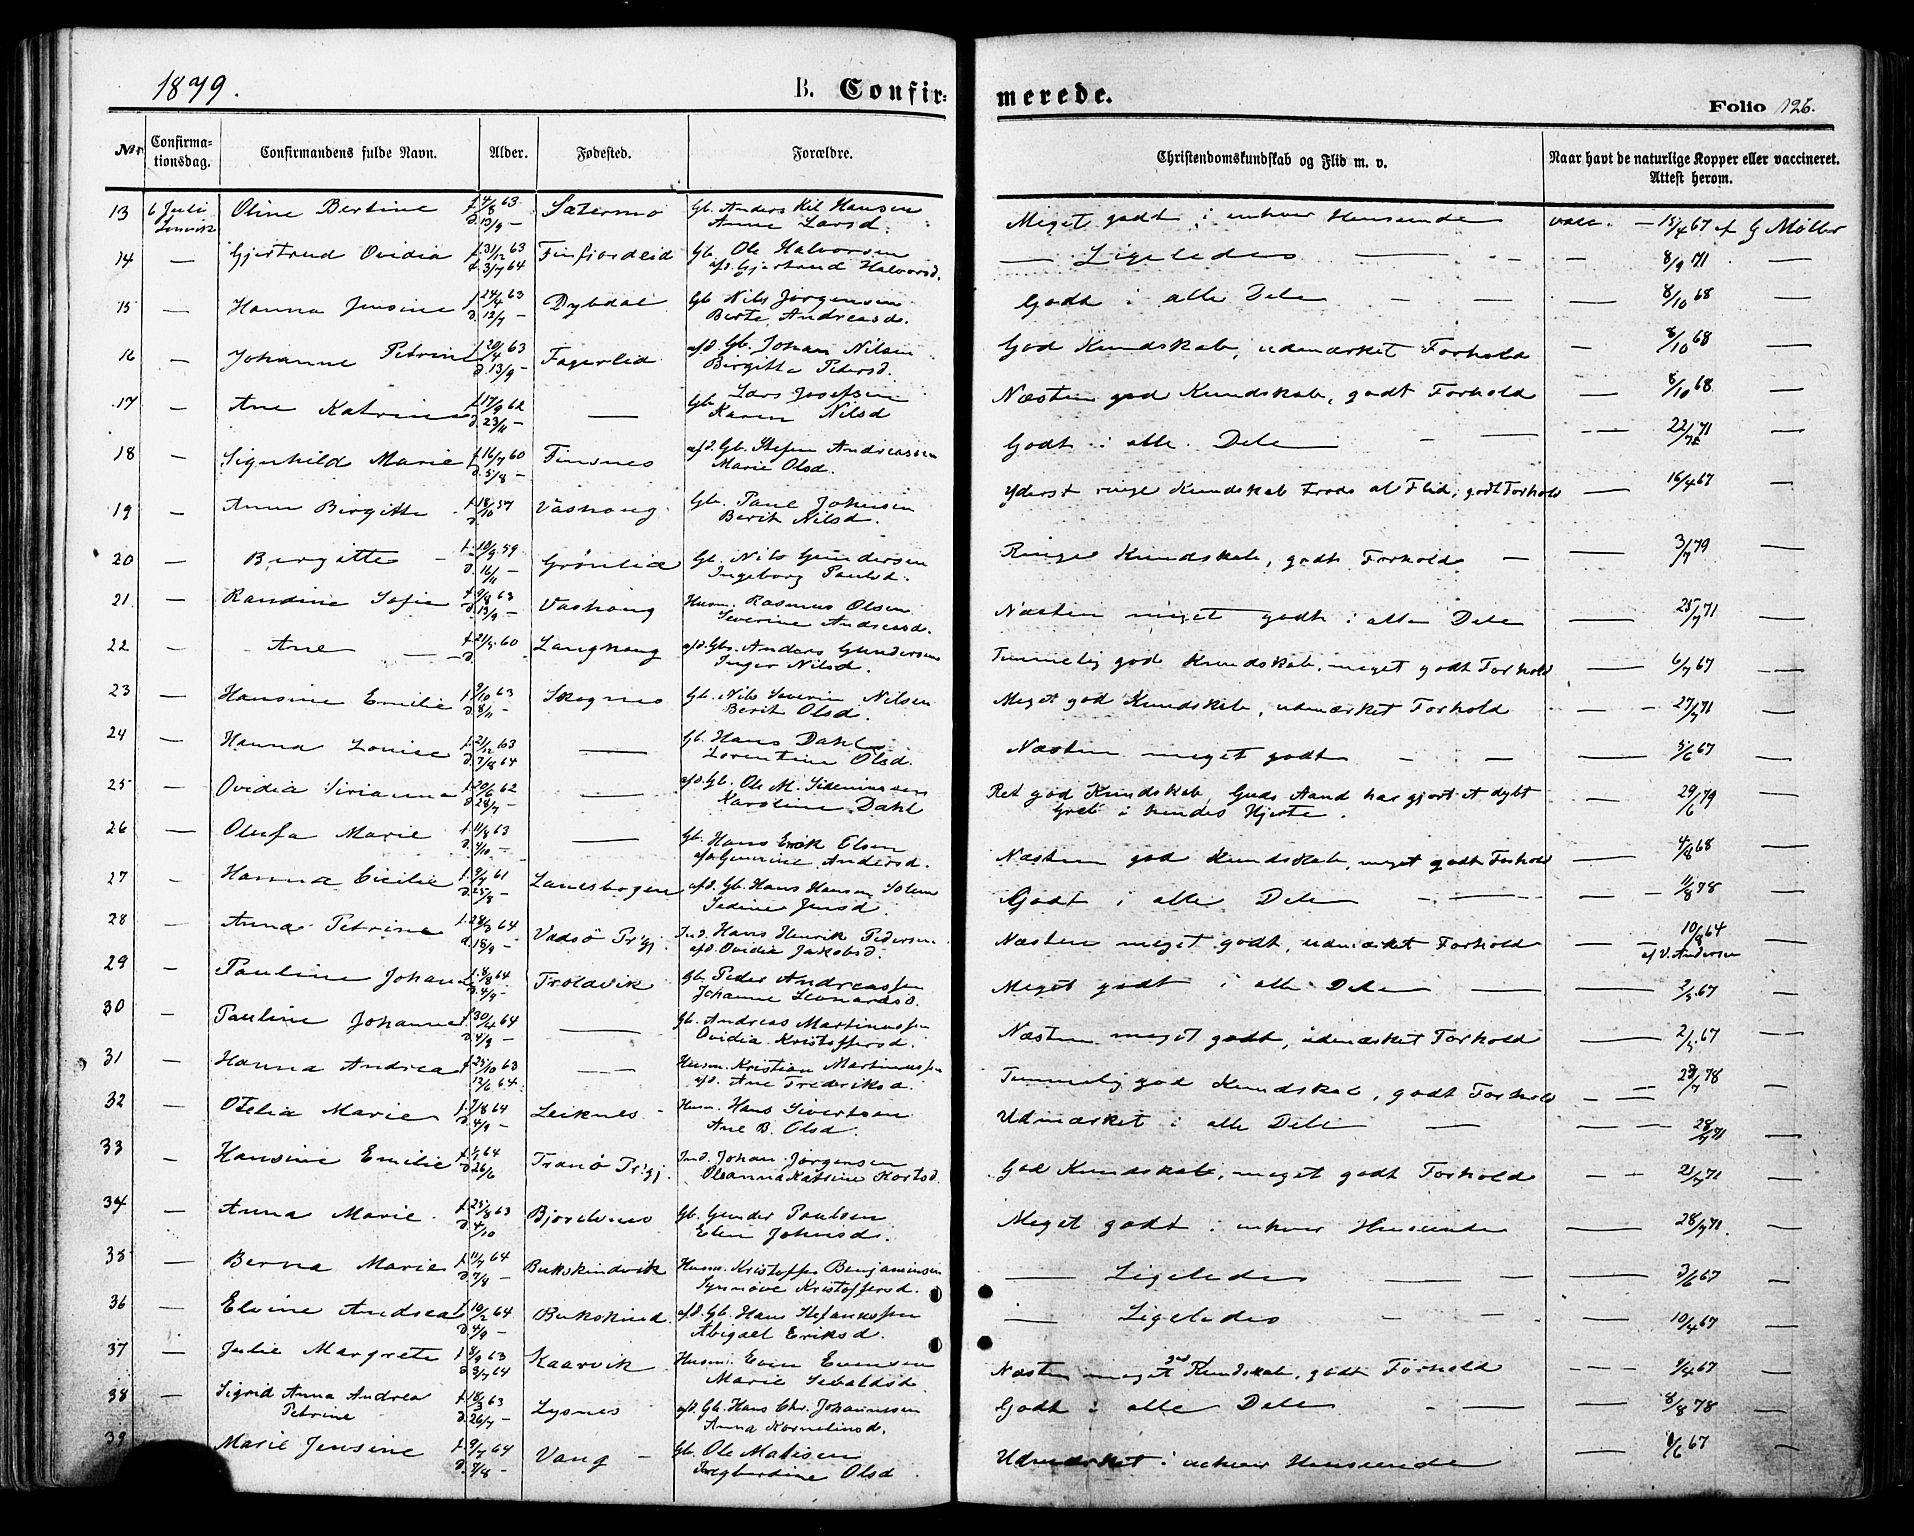 1879.
B. Confir-
merede.
Folio 126.
Nr.
Confirma-
tionsdag.
Confirmandens fulde Navn.
Alder.
Fødested.
Forældre.
Christendomskundskab og Flid m. v.
Naar havt de naturlige Kopper eller vaccineret.
Attest herom.
13 6 Juli Oline Bertine f. 4/8 63 Sætermo Gb. Anders Kil Hansen
Lenvik d. 13/9 — Anne Larsd.
Meget godt i enhver Henseende vacc. — 15/4 67 af G Møller
14 — Gjertrud Ovidia f. 31/12 63 Finfjordeid Gb. Ole Halvorsen
d. 3/7 64 afd. Gjertrud Halvorsd.
— Ligeledes — — 8/9 71 —
15 — Hanna Jensine f. 24/4 63 Dybdal Gb. Nils Jørgensen
d. 12/7 — Berte Andreasd.
Godt i alle Dele — — 8/10 68 —
16 — Johanne Petrine f. 20/4 63 Fagerlid afd. Gb. Johan Nilsen
d. 13/9 — Birgitte Pedersd.
God Kundskab, udmærket Forhold — 8/10 68 —
17 — Ane Katrine f. 17/9 62 — Gb. Lars Josefsen
d. 23/11 — Karen Nilsd
Næsten god Kundskab, godt Forhold — 8/10 68 —
18 — Signhild Marie f. 16/7 60 Finsnes afd. Gb. Stefen Andreassen
d. 5/8 — Marie Olsd.
Godt i alle Dele — — 22/7 71 —
19 — Anne Birgitte f. 18/10 57 Vashaug Gb. Paul Johnsen
Berit Nilsd.
Yderst ringe Kundskab trods al Flid, godt Forhold — 16/4 67 —
20 — Bergitte — f. 10/9 59 Grønlid Gb. Nils Gundersen
d. 16/11 — Ingeborg Paulsd.
Ringe Kundskab, godt Forhold — — 3/7 79 —
21 — Randine Sofie f. 9/8 63 Vashaug Husm. Rasmus Olsen
d. 13/9 — Severine Andreasd.
Næsten meget godt i alle Dele — 25/7 71 —
22 — Ane — f. 21/5 60 Langhaug afd. Gb. Anders Gundersen
d. Inger Nilsd.
Temmelig god Kundskab, meget godt Forhold — 6/7 67 —
23 — Hansine Emilie f. 9/10 63 Skognes Gb. Nils Severin Nilsen
d. 8/11 — Berit Olsd.
Meget god Kundskab, udmærket Forhold — 27/7 71 —
24 — Hanna Louise f. 21/12 63 — Gb. Hans Dahl
d. 7/8 64 Lorentine Olsd.
Næsten meget godt — — 5/6 67 —
25 — Ovidia Sirianna f. 20/6 62 — afd. Gb. Ole M. Sideniussen
d. 28/7 — Karoline Dahl
Ret god Kundskab, Guds Aand har gjort et dybt — 29/6 79 —
Greb i hendes Hjerte.
26 — Olufa Marie f. 11/8 63 — Gb. Hans Erik Olsen
d. 4/10 — afd. Anders d.
Næsten god Kundskab, meget godt Forhold — 4/8 68 —
27 — Hanna Cicilie f. 9/7 61 Lanesbogen afd. Gb. Hans Hansen Solem
d. 25/8 — Sedine Jensd.
Godt i alle Dele — 11/8 78 —
28 — Anna Petrine f. 28/3 64 Vadsø Prgj. Ind. Hans Henrik Pedersen
d. 18/9 — afd. Ovidia Jakobsd.
Næsten meget godt, udmærket Forhold — 10/8 64
af V. Andersen
29 — Pauline Johanna f. 8/8 64 Troldvik Gb. Peder Andreassen
d. 4/9 — Johanne Leonardsd.
Meget godt i alle Dele — — 2/5 67 —
30 — Pauline Johanna f. 30/4 64 — Gb. Andreas Martinussen
d. 4/9 — Ovidia Kristoffersd.
Næsten meget godt, udmærket Forhold — 2/5 67 —
31 — Hanna Andrea f. 25/10 63 — Husm. Kristian Martinussen
13/6 64. afd. Ane Frederiksd.
Temmelig god Kundskab, godt Forhold — 23/7 78 —
32 — Otelia Marie f. 7/8 64 Leiknes — Husm. Hans Sivertsen
d. 4/9 — Ane B. Olsd.
Udmærket i alle Dele — — 28/7 71 —
33 — Hansine Emilie f. 1/5 64 Tranø Prgj. Ind. Johan Jørgensen
d. 26/6 Oleanna Katrine Kortsd.
God Kundskab, meget godt Forhold — 21/7 72 —
34 — Anna Marie f. 25/8 63 Bjorelvnes Gb. Gunder Paulsen
d. 4/10 Elen Johnsd.
Meget godt i enhver Henseende — 28/7 71 —
35 — Berna Marie f. 11/7 64 Bukskindvik Husm. Kristoffer Benjaminsen
d. 7/8 — Synnøve Kristoffersd.
— Ligeledes — — 3/6 67 —
36 — Elvine Andrea f. 10/2 64 Bukskind. afd. Gb. Hans Stefanussen
d. 4/9 — Abigael Eriksd.
— Ligeledes — — 10/4 67 —
37 — Julie Margrete f. 8/9 63 Kaarvik Husm. Even Evensen
d. 3/7 64 Marie Sebaldsd.
Næsten meget god Kundskab, godt Forhold — 9/4 67 —
38 — Sigrid Anna Andrea f. 18/3 63 Lysnes afd. Gb. Hans Chr. Johannessen
Petrine d. 26/7 — Anna Korneliusd.
Godt i alle Dele — 8/8 78 —
39 Marie Jensine f. 9/7 64 Vang — Gb. Ole Matisen
d. 7/8 — Ingbordine Olsd
Udmærket i enhver Henseende — 1/6 67 —